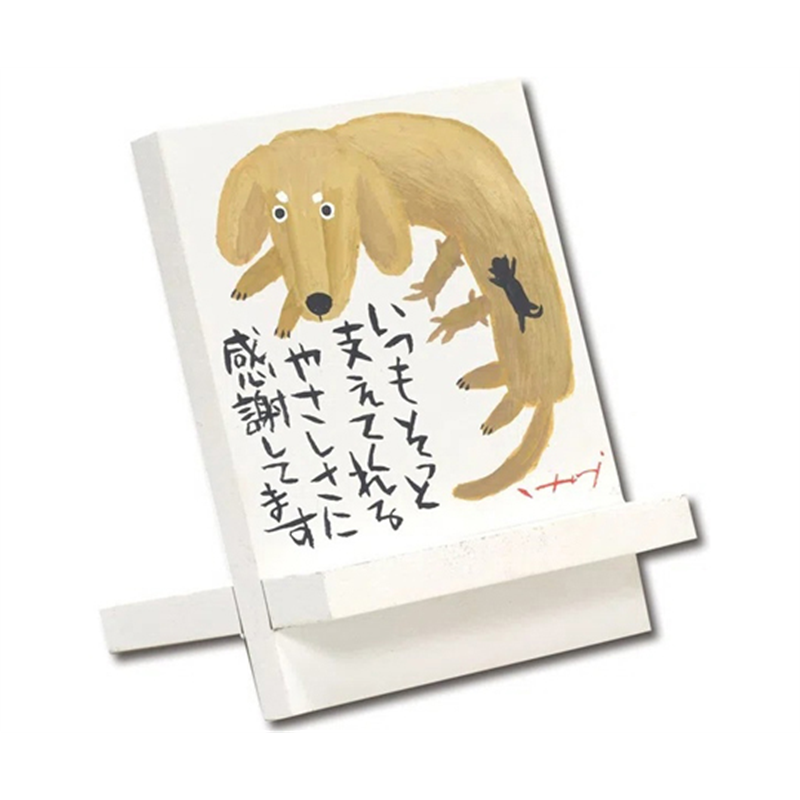 いつもそっと
支えてくれる
やさしさに
感謝してます